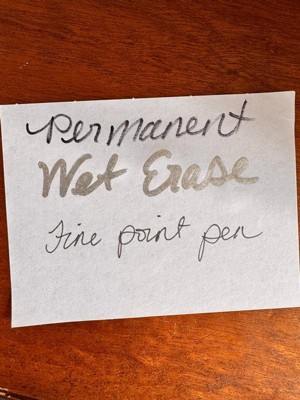 Permanent
Wet Erase
Fine point pen